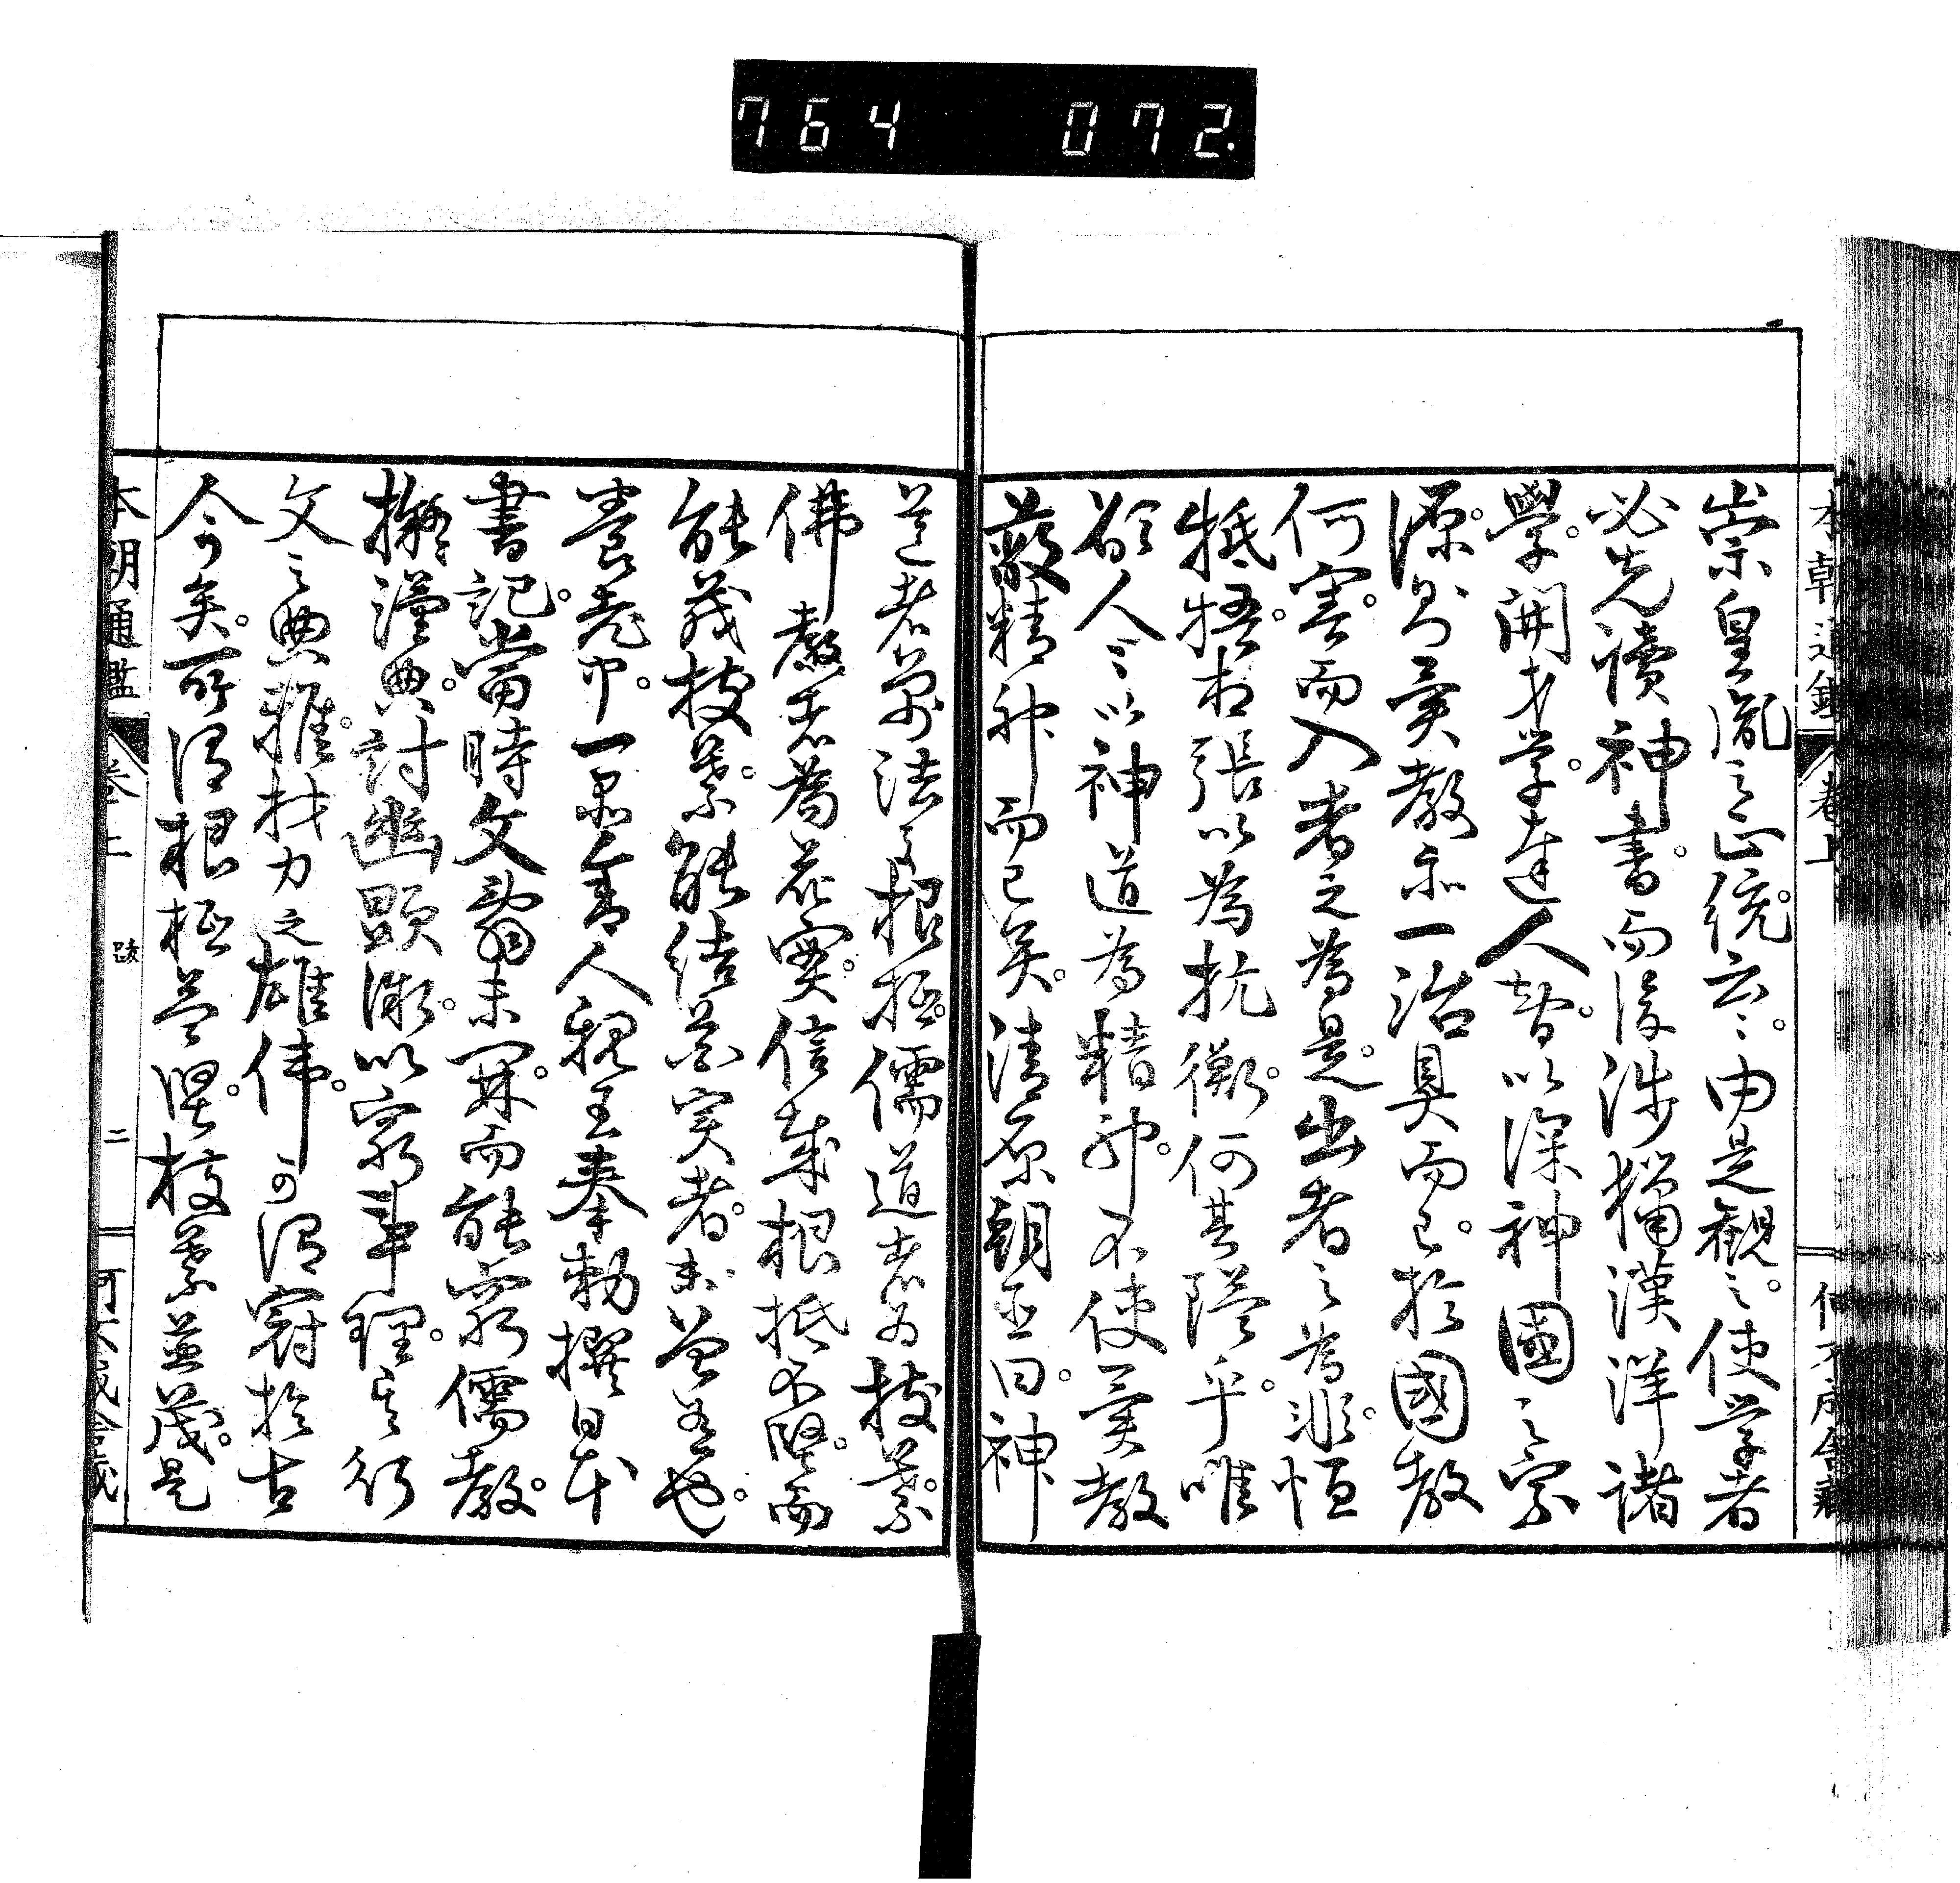 764 072
本朝通鑑 卷上
崇皇胤之正統。云〻。由是觀之。使学者
必先讀神書。而後涉獵漢洋諸
學。開才学。達人智。以深神國之宗
源。則異教亦一治具而已。於國教
何害。而入者之為是。出者之為非。恒
牴牾。相張以為抗衡。何其隘乎。唯
欲人〻以神道為精神。不使異教
蔽精神而已矣。清原朝臣曰。神
道者萬法之根柢。儒道者為枝葉。
佛教者為花實。信哉根柢不堅。而
能茂枝葉。能結花実者。未曽有也。
養老中。一品舎人親王奉勅撰日本
書記。當時文翁未開。而能窮儒教。
擬漢典。討幽顕微。以窮事理。其行
文之典雅。材力之雄偉。可謂冠於古
今矣。所謂根柢益堅。枝葉並茂。是
本朝通鑑 卷上 二